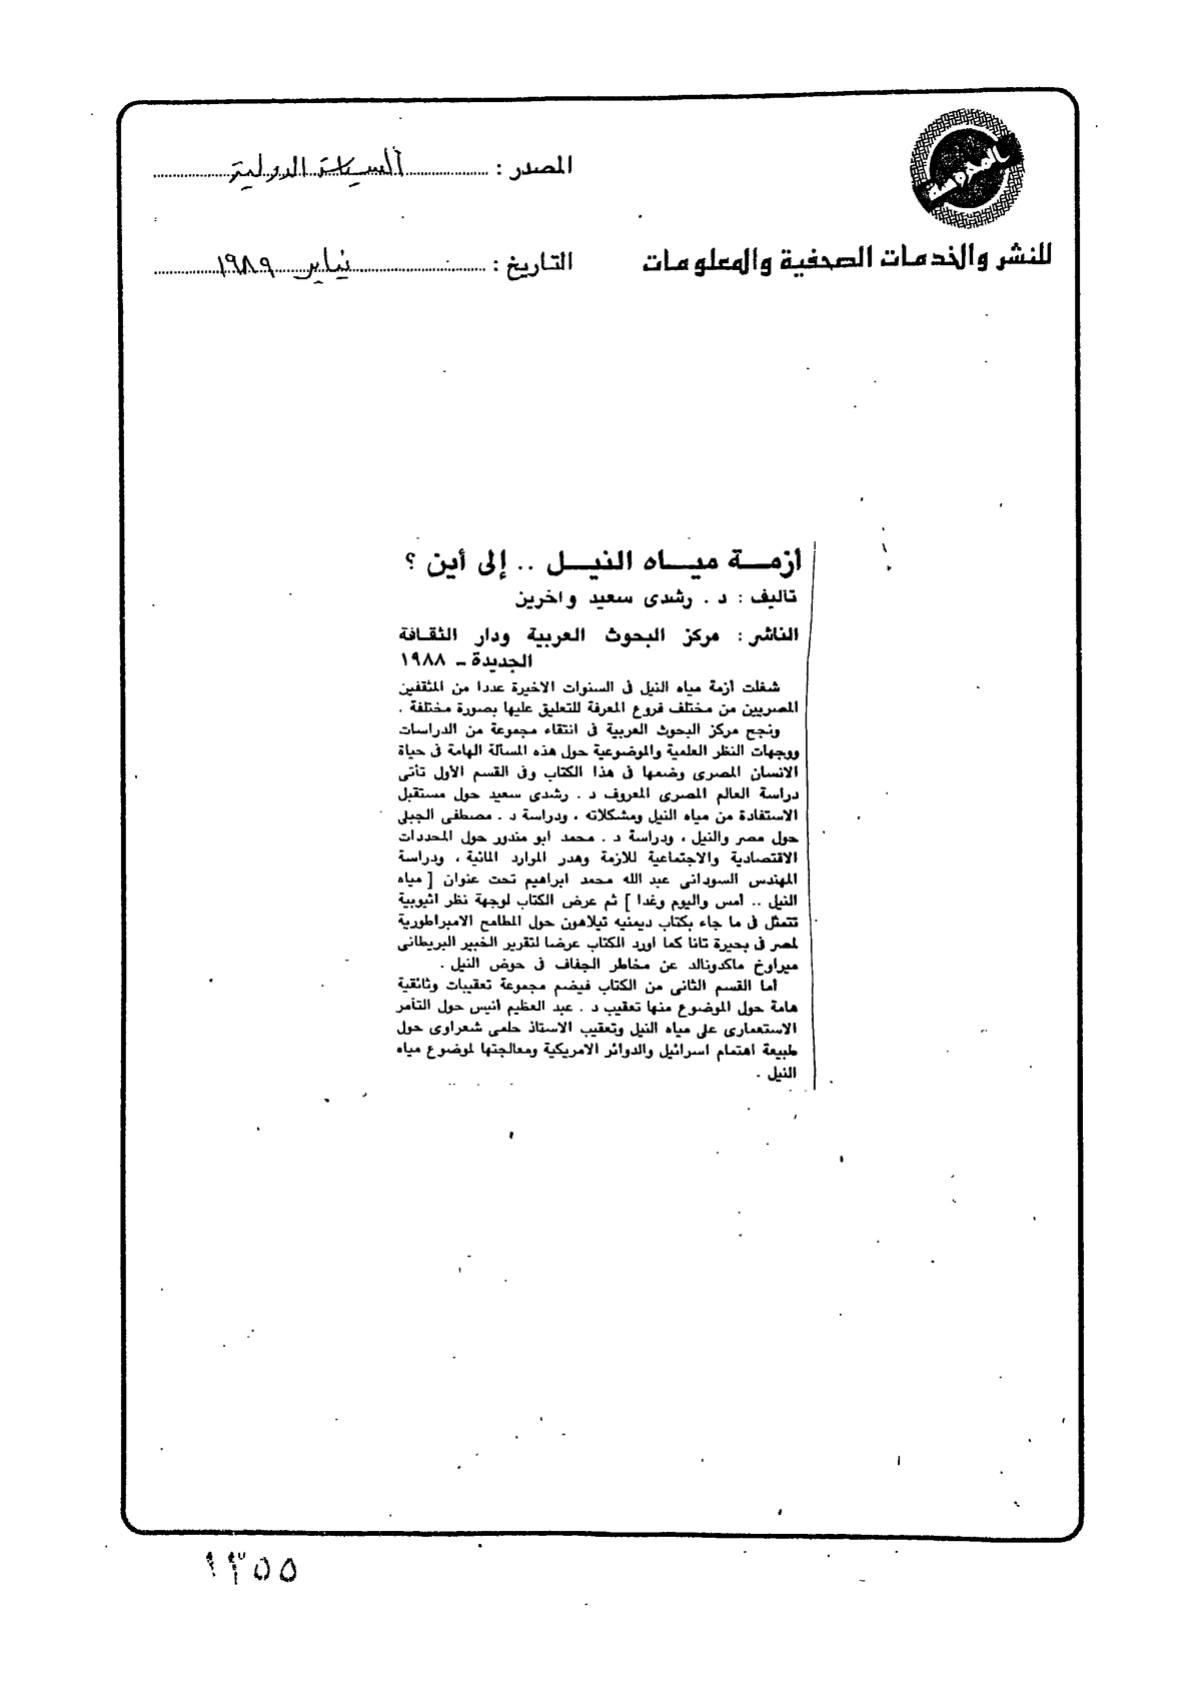 المحروسة
للنشر والخدمات الصحفية والمعلومات
المصدر : السياسة الدولية
التاريخ : يناير ١٩٨٩
أزمـــة ميـــاه النيـــل .. إلى أين ؟
تاليف : د . رشدى سعيد واخرين
الناشر : مركز البحوث العربية ودار الثقافة
الجديدة ــ ١٩٨٨
شغلت أزمة مياه النيل فى السنوات الاخيرة عددا من المثقفين
المصريين من مختلف فروع المعرفة للتعليق عليها بصورة مختلفة .
ونجح مركز البحوث العربية فى انتقاء مجموعة من الدراسات
ووجهات النظر العلمية والموضوعية حول هذه المسألة الهامة فى حياة
الانسان المصرى وضمها فى هذا الكتاب وفى القسم الأول تأتى
دراسة العالم المصرى المعروف د . رشدى سعيد حول مستقبل
الاستفادة من مياه النيل ومشكلاته ، ودراسة د . مصطفى الجبلى
حول مصر والنيل ، ودراسة د . محمد ابو مندور حول المحددات
الاقتصادية والاجتماعية للازمة وهدر الموارد المائية ، ودراسة
المهندس السودانى عبد الله محمد ابراهيم تحت عنوان [ مياه
النيل .. أمس واليوم وغدا ] ثم عرض الكتاب لوجهة نظر اثيوبية
تتمثل فى ما جاء بكتاب ديمنيه تيلاهون حول المطامح الامبراطورية
لمصر فى بحيرة تانا كما اورد الكتاب عرضا لتقرير الخبير البريطانى
ميراوخ ماكدونالد عن مخاطر الجفاف فى حوض النيل .
أما القسم الثانى من الكتاب فيضم مجموعة تعقيبات وثائقية
هامة حول الموضوع منها تعقيب د . عبد العظيم أنيس حول التآمر
الاستعمارى على مياه النيل وتعقيب الاستاذ حلمى شعراوى حول
طبيعة اهتمام اسرائيل والدوائر الامريكية ومعالجتها لموضوع مياه
النيل .
١٣٥٥